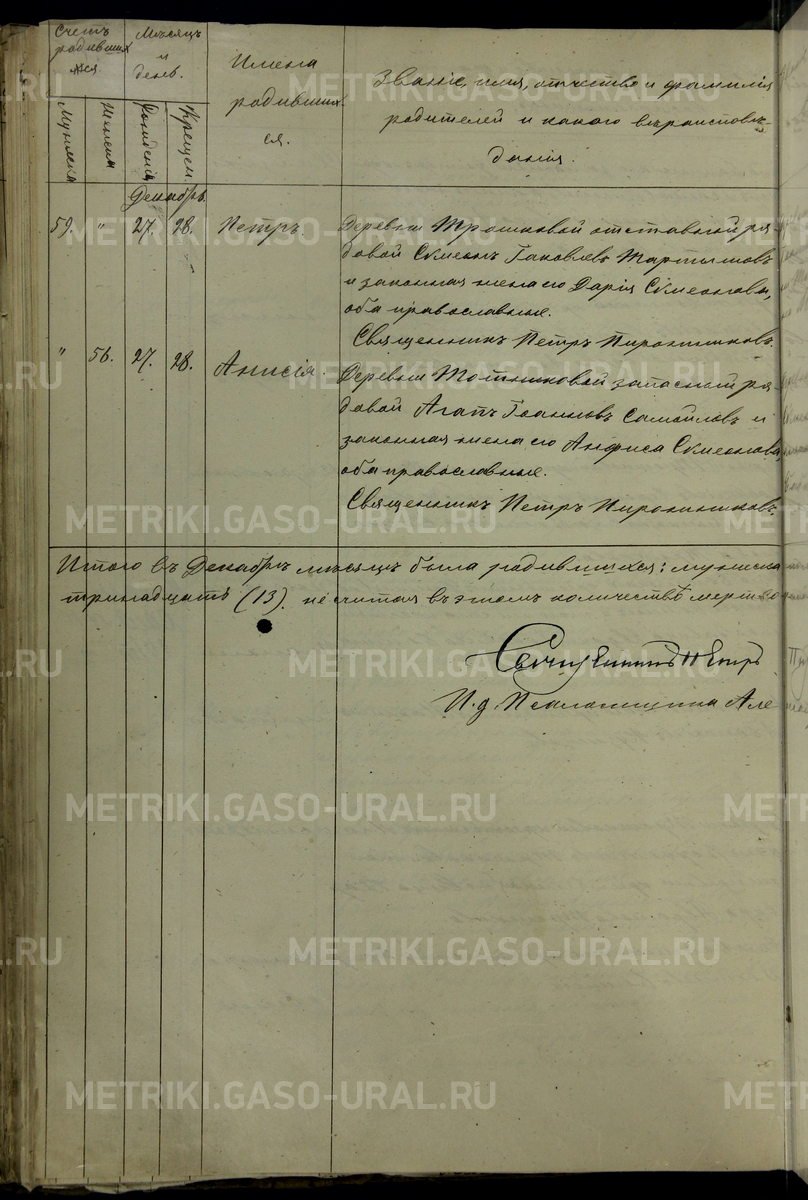 Счетъ
родивших
ся.
Мѣсяцъ
и
день.
Имена
родивших
ся.
Званіе, имя, отчество и фамилія
родителей и какого вѣроисповѣ-
данія.
Мужеска
Женска
Рожденія
Крещен.
Декабрь.
59. " 27. 28. Петръ.
Деревни Трошковой отставной ря-
довой Сѵмеонъ Іаковлевъ Мартышовъ
и законная жена его Дарія Сѵмеонова,
оба православные.
Священникъ Петръ
" 56. 27. 28. Анисія.
Деревни запасный ря-
довой Агапъ Іоанновъ Самойловъ и
законная жена его Анфиса Сѵмеонова,
оба православные.
Священникъ Петръ
Итого въ Декабрѣ мѣсяцѣ было родившихся: мужеска
тринадцать (13). не считая въ этомъ количествѣ мертво
Священникъ Петръ
И. д. Псаломщика Але
METRIKI.GASO-URAL.RU